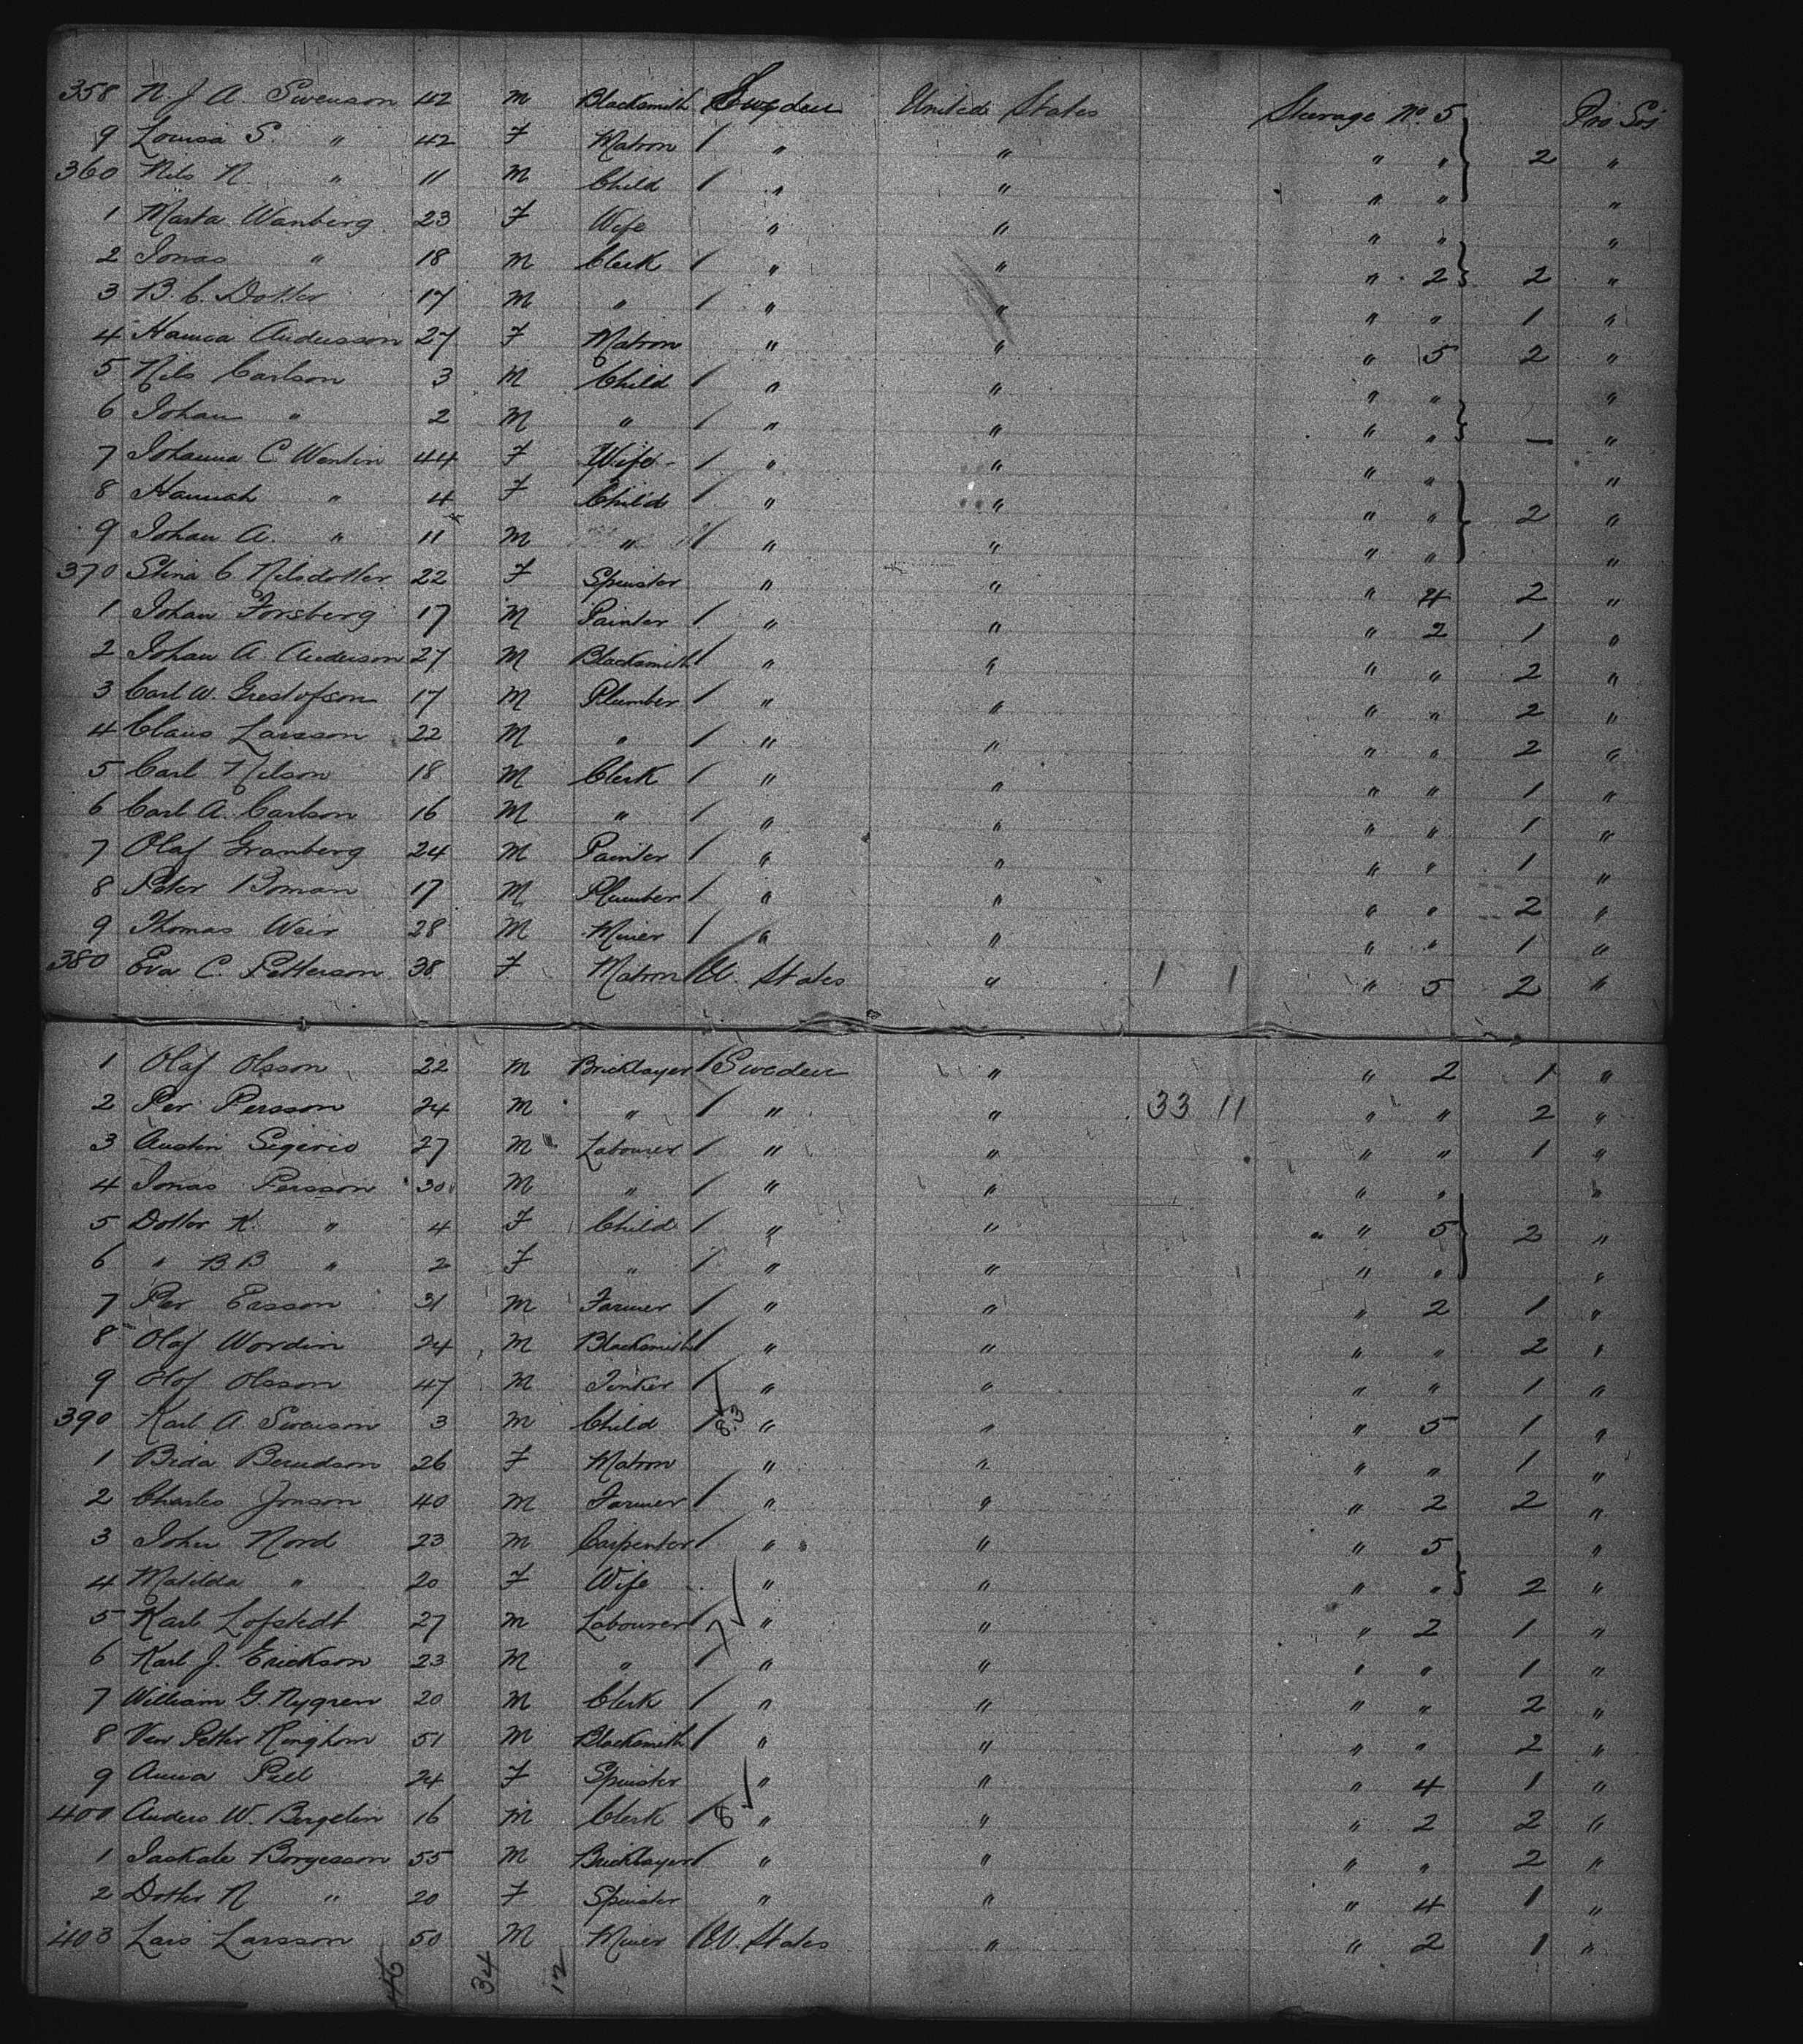 358 N. J. A. Swenson 42 M Blacksmith Sweden United States Steerage No. 5 Pro Soj
9 Louisa S. " 42 F Matron / " " " " 2 "
360 Nils N. " 11 M Child / " " " " "
1 Marta Wanberg 23 F Wife " " " " "
2 Jonas " 18 M Clerk / " " " 2 2 "
3 B. C. Dotter 17 M " / " " " " 1 "
4 Hanna Andersson 27 F Matron " " " 5 2 "
5 Nils Carlson 3 M Child / " " " " "
6 Johan " 2 M " / " " " " — "
7 Johanna C Wentin 44 F Wife / " " " " "
8 Hannah " 4 F Child / " " " " 2 "
9 Johan A. " 11 M " / " " " " "
370 Stina C Nilsdotter 22 F Spinster " " " 4 2 "
1 Johan Forsberg 17 M Painter / " " " 2 1 "
2 Johan A. Anderson 27 M Blacksmith / " " " " 2 "
3 Carl W. Gustofson 17 M Plumber / " " " " 2 "
4 Claus Larsson 22 M " / " " " " 2 "
5 Carl Nilson 18 M Clerk / " " " " 1 "
6 Carl A. Carlson 16 M " / " " " " 1 "
7 Olaf Granberg 24 M Painter / " " " " 1 "
8 Peter Boman 17 M Plumber / " " " " 2 "
9 Thomas Weir 28 M Miner / " " " " 1 "
380 Eva C. Petterson 38 F Matron / U. States " 1 1 " 5 2 "
1 Olaf Olsson 22 M Bricklayer / Sweden " " 2 1 "
2 Per Persson 24 M " / " " 33 11 " " 2 "
3 Austin 27 M Labourer / " " " " 1 "
4 Jonas Persson 30 M " / " " " " "
5 Dotter K. " 4 F Child / " " " 5 2 "
6 " B B " 2 F " / " " " " "
7 Per Ersson 31 M Farmer / " " " 2 1 "
8 Olof Wordin 24 M Blacksmith / " " " " 2 "
9 Olof Olsson 47 M Tinker / " " " " 1 "
390 Karl A. Swenson 3 M Child / 83 " " " 5 1 "
1 Brda Berndson 26 F Matron " " " " 1 "
2 Charles Jonson 40 M Farmer / " " " 2 2 "
3 John Nord 23 M Carpenter / " " " 5 "
4 Matilda " 20 F Wife " " " " 2 "
5 Karl Lofstedt 27 M Labourer / 7 " " " 2 1 "
6 Karl J. Erickson 23 M " / " " " " 1 "
7 William G. Nygren 20 M Clerk / " " " " 2 "
8 Petter 51 M Blacksmith / " " " " 2 "
9 Anna Pell 24 F Spinster " " " 4 1 "
400 Anders W. Bergelin 16 M Clerk / 8 " " " 2 2 "
1 Borgesson 55 M Bricklayer / " " " " 2 "
2 Dotter N " 20 F Spinster " " " 4 1 "
403 Lars Larsson 50 M Miner / U. States " " 2 1 "
46 34 12